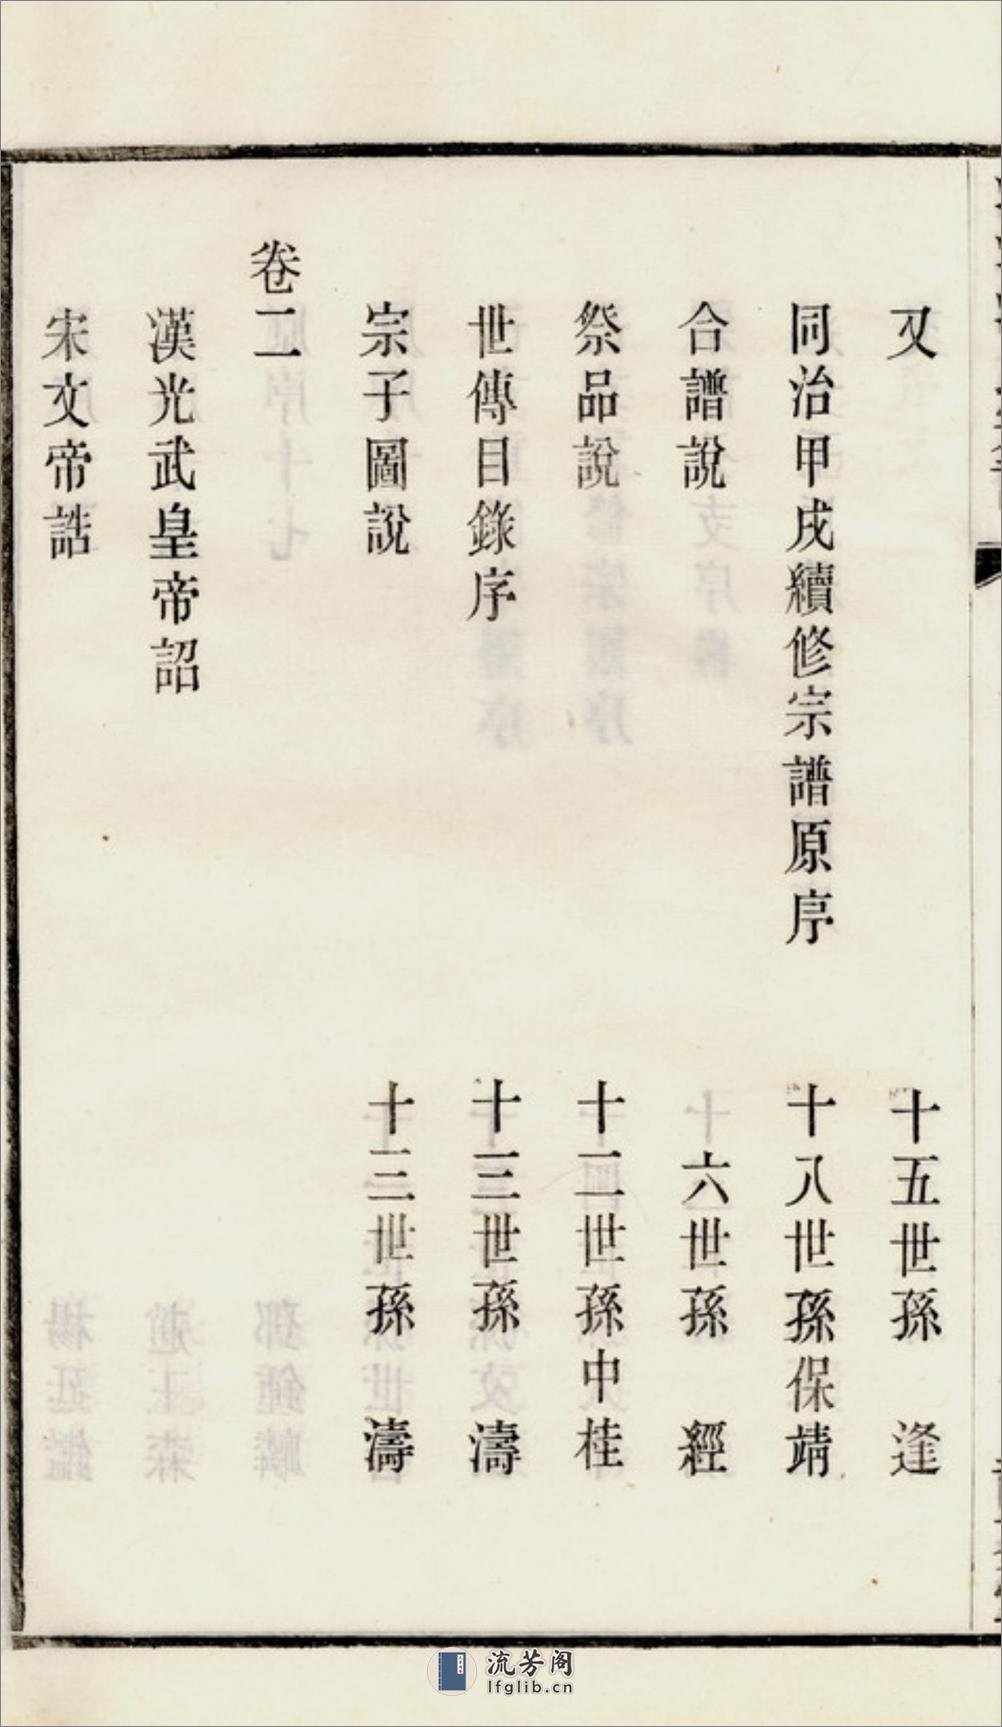 又　十五世孫　逢
同治甲戌續修宗譜原序　十八世孫保靖
合譜說　十六世孫　經
祭品說　十二世孫中桂
世傳目錄序　十三世孫　濤
宗子圖說　十三世孫　濤
卷二
漢光武皇帝詔
宋文帝誥
流芳阁
lfglib.cn